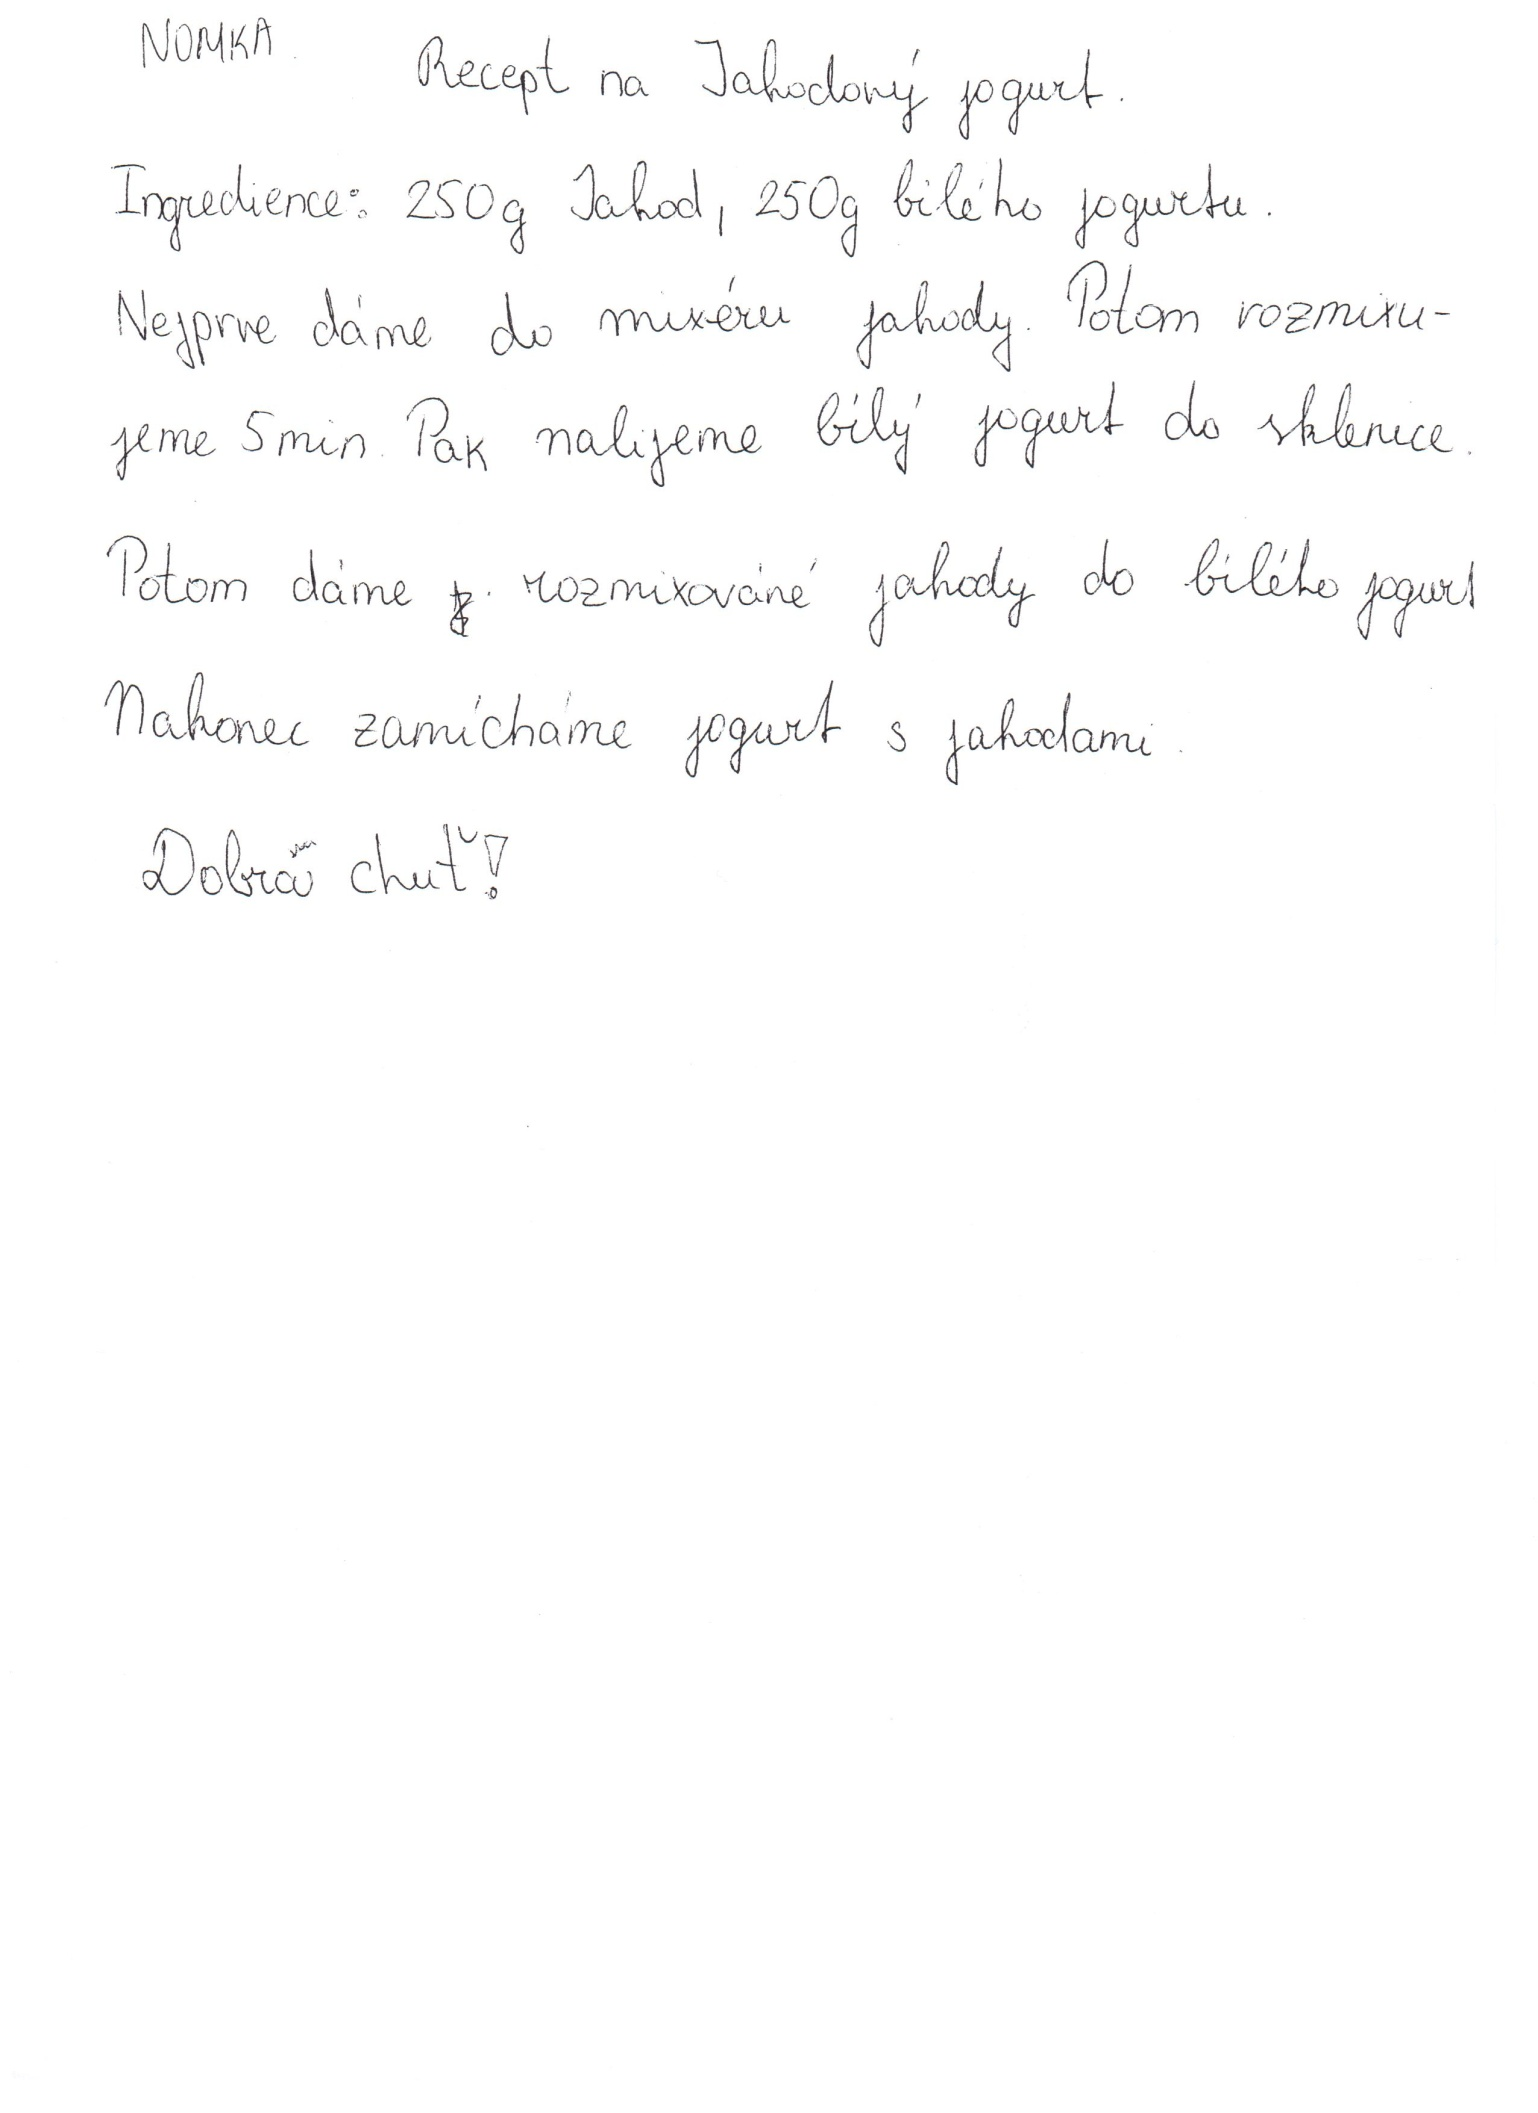 NOMKA
Recept na Jahodový jogurt.
Ingredience: 250g Jahod, 250g bilého jogurtu.
Nejprve dáme do mixéru jahody. Potom rozmixu-
jeme 5min. Pak nalijeme bílý jogurt do sklenice.
Potom dáme rozmixováné jahody do bílého jogurt
Nakonec zamícháme jogurt s jahodami.
Dobrá chuť!